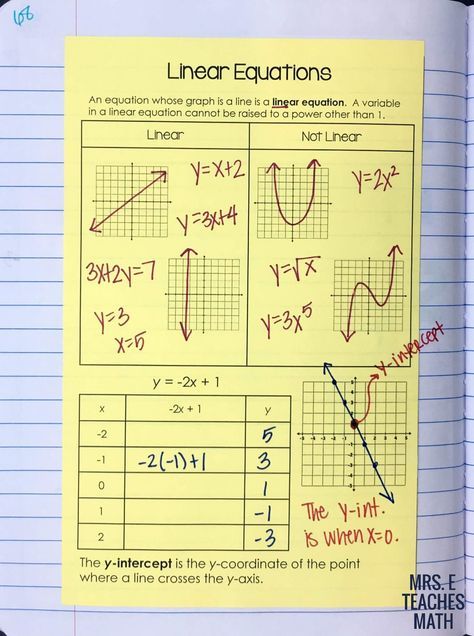 68
Linear Equations
An equation whose graph is a line is a linear equation. A variable
in a linear equation cannot be raised to a power other than 1.
Linear
Not Linear
y=x+2
y=3x+4
3x+2y=7
y=3
x=5
y=2x²
y=√x
y=3x⁵
y-intercept
y = -2x + 1
x -2x + 1 y
-2 5
-1 -2(-1)+1 3
0 1
1 -1
2 -3
The y-int.
is when x=0.
The y-intercept is the y-coordinate of the point
where a line crosses the y-axis.
MRS. E
TEACHES
MATH